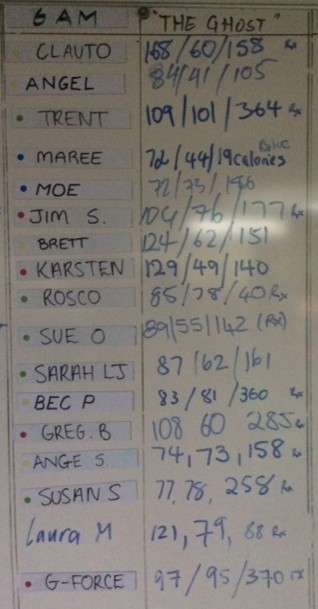 6 AM "THE GHOST"
CLAUTO 168/60/158 Rx
ANGEL 84/41/105
TRENT 109/101/364 Rx
MAREE 72/44/19calories Bike
MOE 72/73/196
JIM S. 104/76/177 Rx
BRETT 124/62/151
KARSTEN 129/49/140
ROSCO 85/78/40 Rx
SUE O 89/55/142 (Rx)
SARAH LJ 87/62/161
BEC P 83/81/360 Rx
GREG.B 108 60 285 Rx
ANGE S. 74,73,158 Rx
SUSAN S 77,78,258 Rx
Laura M 121,79,88 Rx
G-FORCE 97/95/370 rx